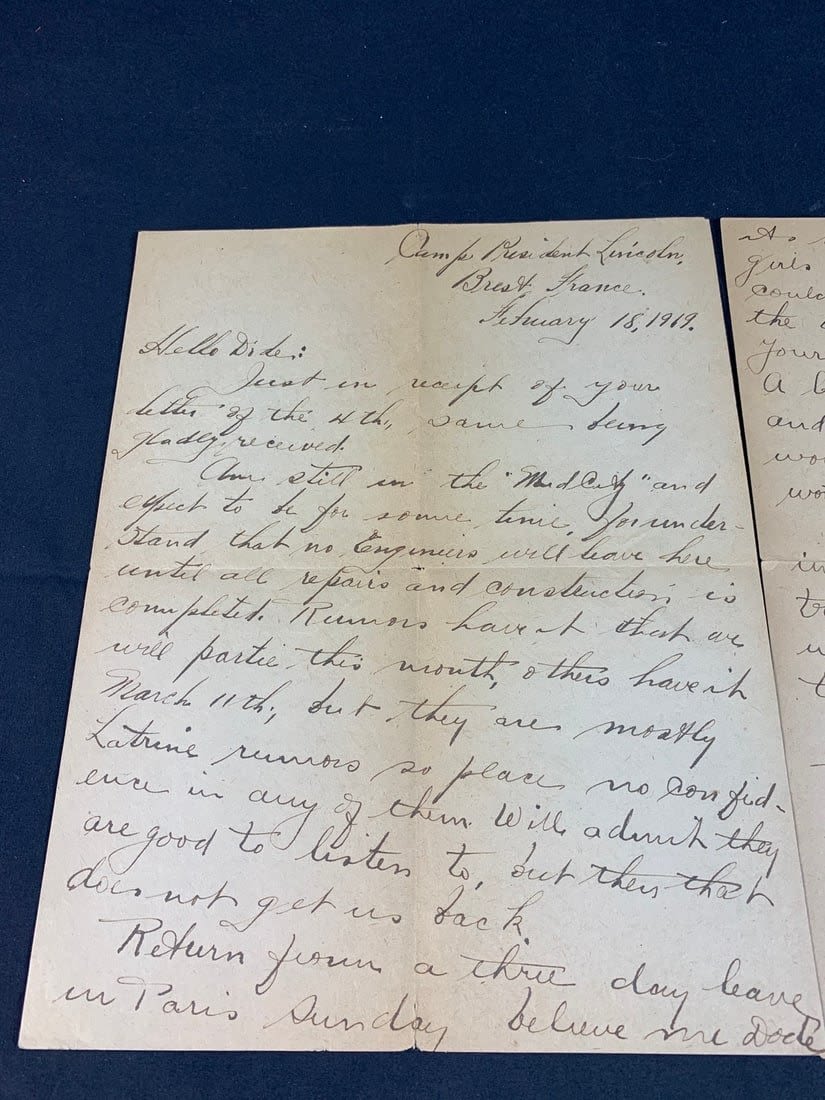 Camp President Lincoln,
Brest France.
February 18, 1919.
Hello Dide:
Just in receipt of your
letter of the 4th, same being
gladly received.
Am still in the "Mud City" and
expect to be for some time, for under-
stand that no Engineers will leave here
until all repairs and construction is
completed. Rumors have it that we
will partie this month, others have it
March 11th, but they are mostly
Latrine rumors so place no confid-
ence in any of them. Will admit they
are good to listen to, but then that
does not get us back.
Return from a three day leave
in Paris Sunday believe me Dode
As
girls
could
the
your
A
and